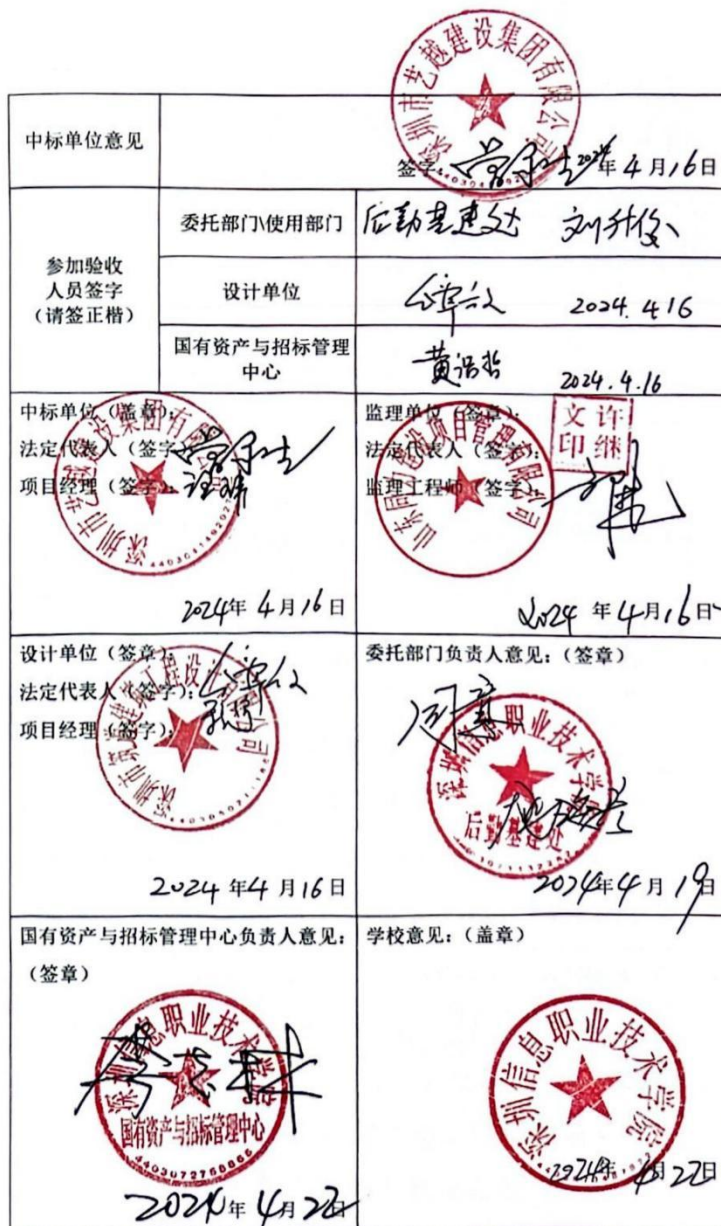 深圳市艺越建设集团有限公司
中标单位意见
签字 2024年4月16日
参加验收
人员签字
（请签正楷）
委托部门\使用部门
后勤基建处 刘升俊
设计单位
2024.4.16
国有资产与招标管理
中心
黄浩哲
2024.4.16
中标单位（盖章）：
法定代表人（签字）：
项目经理（签字）：
深圳市艺越建设集团有限公司
2024年4月16日
监理单位（签章）：
法定代表人（签字）：
监理工程师（签字）：
许继
文印
建设项目管理有限公司
2024年4月16日
设计单位（签章）
法定代表人（签字）：
项目经理（签字）：
2024年4月16日
委托部门负责人意见：（签章）
深圳信息职业技术学院
后勤基建处
2024年4月19日
国有资产与招标管理中心负责人意见：
（签章）
深圳信息职业技术学院
国有资产与招标管理中心
4403072756666
2024年4月22日
学校意见：（盖章）
深圳信息职业技术学院
2024年4月22日